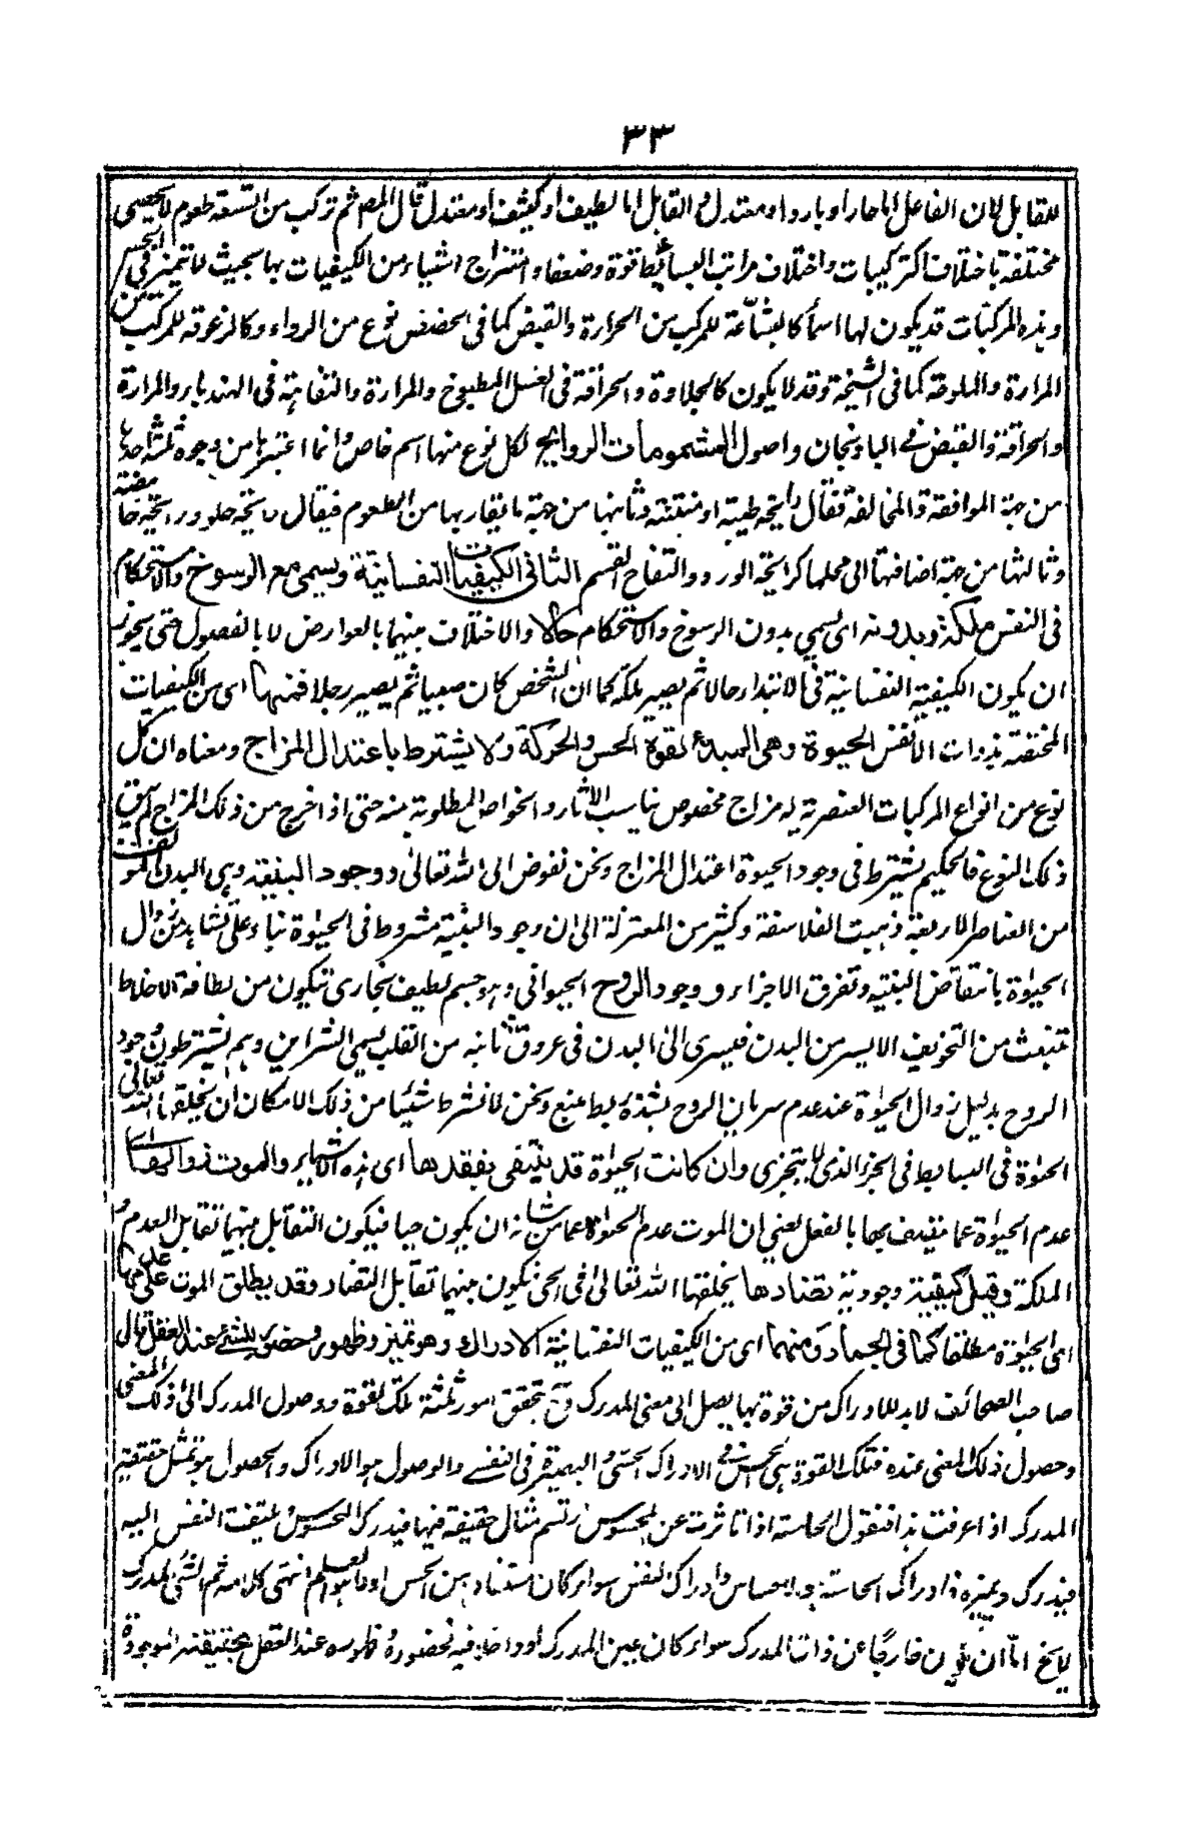 ٣٣
للقابل لان الفاعل اما حار او بارد او معتدل و القابل اما لطيف او كثيف او معتدل قال المص ثم تركب من التسعة طعوم لا تحصى
مختلفة باختلاف التركيبات واختلاف مراتب البسائط قوة وضعفا و امتزاج اشياء من الكيفيات بها بحيث لا تتميز في الحس
وهذه المركبات قد يكون لها اسما كالبشاعة للمركب من المرارة والقبض كما فى الحضض نوع من الدواء وكالزعوقة للمركب من
المرارة والملوحة كما فى الشيخة وقد لا يكون كالحلاوة والحرافة فى العسل المطبوخ والمرارة والتفاهة فى الهندباء والمرارة
والحرافة والقبض فى الباذنجان واصول المشمومات الروايح لكل نوع منها اسم خاص وانما اعتبرها من وجوه ثلثه احدها
من جهة الموافقة والمخالفة فقال رايحة طيبة او منتنة وثانيها من جهة ما يقاربها من الطعوم فيقال رايحة حلوة ورايحة حامضة
وثالثها من جهة اضافتها الى محلها كرايحة الورد والتفاح القسم الثانى الكيفيات النفسانية ويسمى مع الرسوخ والاستحكام
فى النفس ملكة وبدونه اى يسمى بدون الرسوخ والاستحكام حالا والاختلاف بينهما بالعوارض لا بالفصول حتى يجوز
ان يكون الكيفية النفسانية فى الابتداء حالا ثم يصير ملكة كما ان الشخص كان صبيا ثم يصير رجلا فمنها اى من الكيفيات
المختصة بذوات الانفس الحيوة وهى المبدء لقوة الحس والحركة ولا يشترط باعتدال المزاج ومعناه ان كل
نوع من انواع المركبات العنصرية له مزاج مخصوص يناسب الاثار والخواص المطلوبة منه حتى اذا خرج من ذلك المزاج لم يبق
ذلك النوع فالحكيم يشترط فى وجود الحيوة اعتدال المزاج ونحن نفوض الى الله تعالى ووجود البنية وهى البدن المؤلف
من العناصر الاربعة ذهبت الفلاسفة وكثير من المعتزلة الى ان وجود البنية مشروط فى الحيٰوة بناء على مشاهد من زوال
الحيٰوة بانتقاض البنية وتفرق الاجزاء ووجود الروح الحيوانى وهو جسم لطيف بخارى يتكون من لطافة الاخلاط
تنبعث من التجويف الايسر من البدن فيسرى الى البدن فى عروق نابتة من القلب يسمى الشرايين وهم يشترطون وجود
الروح بدليل زوال الحيٰوة عند عدم سريان الروح بشدة ربط يمنع ونحن لا نشترط شيئا من ذلك لامكان ان يخلقها الله تعالى
الحيٰوة فى البسايط فى الجزء الذى لا يتجزى وان كانت الحيٰوة قد ينتفى بفقدها اى هذه الاشياء والموت زوالها اى
عدم الحيوٰة عما يتصف بها بالفعل يعنى ان الموت عدم الحيوٰة عما من شانه ان يكون حيا فيكون التقابل بينهما تقابل العدم و
الملكة وقيل كيفية وجودية تضادها يخلقها الله تعالى فى الحى فيكون بينهما تقابل التضاد وقد يطلق الموت على عدمها
اى الحيوٰة مطلقا كما فى الجماد ومنها اى من الكيفيات النفسانية الادراك وهو تميز وظهور وحضور للشئ عند العقل قال
صاحب الصحائف لا بد للادراك من قوة بها يصل الى معنى المدرك وح تحقق امور ثلثة تلك القوة ووصول المدرك الى ذلك المعنى
وحصول ذلك المعنى عنده فتلك القوة هى الحس فى الادراك الحسى و البصيرة فى النفسى والوصول هو الادراك والحصول هو تمثل حقيقة
المدرك اذا عرفت هذا فنقول الحاسة اذا تاثرت عن المحسوس ارتسم مثال حقيقة فيها فيدرك المحسوس ثم يلتفت النفس اليه
فيدرك وتميزه فادراك الحاسة هو الاحساس وادراك النفس سواء كان استفاد من الحس او لا هو العلم انتهى كلامه ثم الشئ المدرك
لا يخ اما ان يكون خارجا عن ذات المدرك سواء كان عين المدرك او داخلا فيه فحضوره و ظهوره عند العقل بحقيقته الموجودة